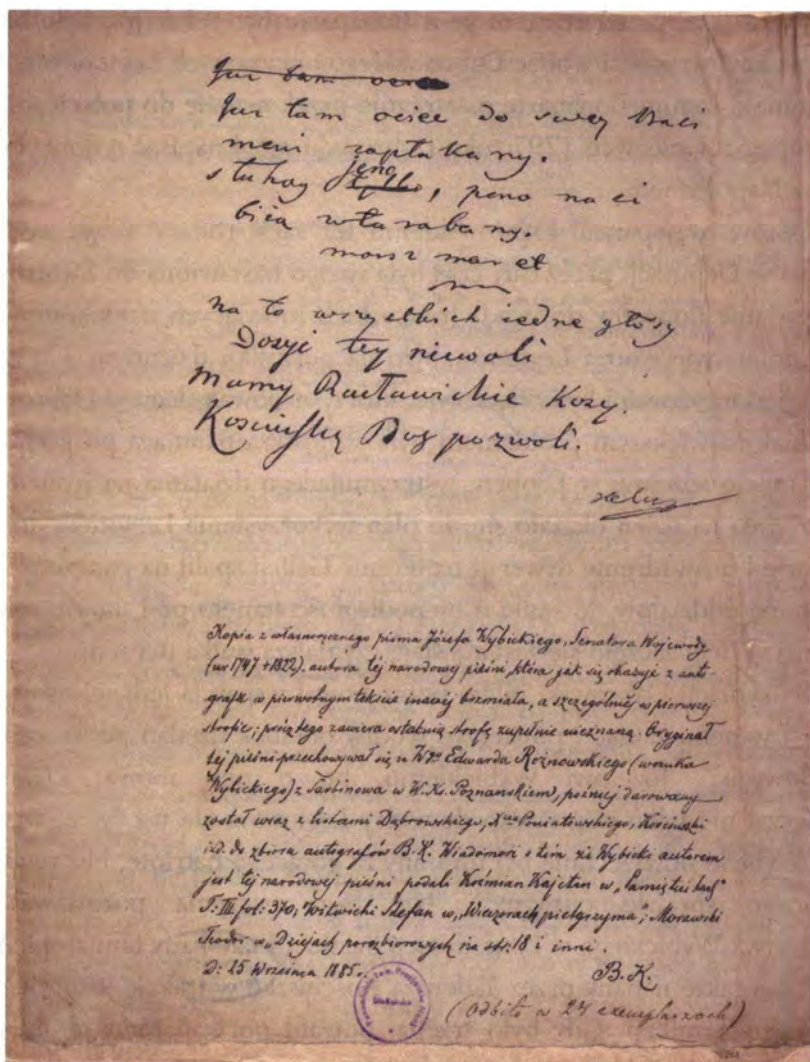 Jur tam ociec
Jur tam ociec do swey Baci
mowi zapłakany.
słuhay jeno, peno naci
biią wtarabany.
marsz marsz
na to wszystkich iedne głosy
Dosyć tey niewoli
mamy Racławickie Kosy.
Kosciuszkę Bog pozwoli.
Kopia z własnoręcznego pisma Józefa Wybickiego, Senatora Wojewody
(ur 1747 + 1822). autora téj narodowej pieśni, która jak się okazuje z auto-
grafu w pierwotnym tekście inaczéj brzmiała, a szczególniéj w pierwszej
strofie; prócz tego zawiera ostatnią strofę zupełnie nieznaną. Oryginał
téj pieśni przechowywał się u Wgo Edwarda Rożnowskiego (wnuka
Wybickiego) z Sarbinowa w W. Ks. Poznańskiem, poźniej darowany
został wraz z listami Dąbrowskiego, Xcia Poniatowskiego, Kościuszki
itd. do zbioru autografów B.K. Wiadomość o tém że Wybicki autorem
jest téj narodowej pieśni podali Koźmian Kajetan w „Pamiętnikach”
T: III fol: 370; Witwicki Stefan w „Wieczorach pielgrzyma”; Morawski
Teodor w „Dziejach porozbiorowych na str: 18 i inni.
D: 25 Września 1885 r.
B.K.
(Odbito w 24 exemplarzach)